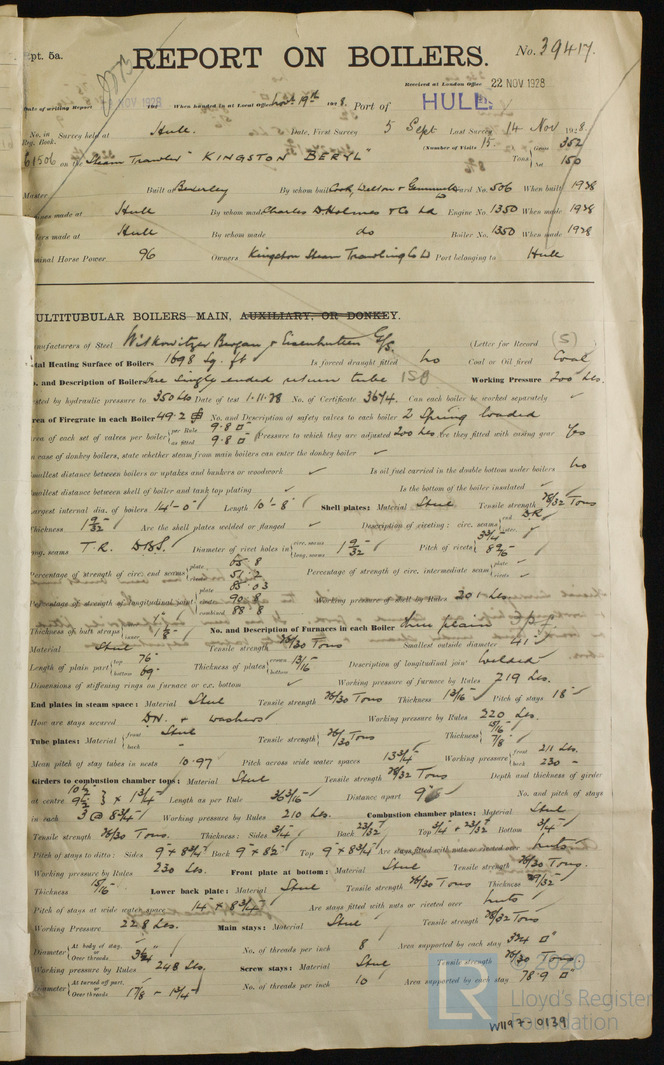 pt. 5a.
REPORT ON BOILERS.
No. 39417.
Received at London Office 22 NOV 1928
Date of writing Report NOV 1928 When handed in at Local Office Nov. 19th 1928. Port of HULL.
No. in Reg. Book. Survey held at Hull. Date, First Survey 5 Sept Last Survey 14 Nov 1928.
(Number of Visits 15.
61506 on the Steam Trawler KINGSTON BERYL Tons Gross 352 Net 150
Master Built at Beverley By whom built Cook, Welton & Gemmell Yard No. 506 When built 1928
ines made at Hull By whom made Charles D. Holmes & Co Ld Engine No. 1350 When made 1928
lers made at Hull By whom made do Boiler No. 1350 When made 1928
minal Horse Power 96 Owners Kingston Steam Trawling Co Ld Port belonging to Hull
ULTITUBULAR BOILERS—MAIN, AUXILIARY, OR DONKEY.
anufacturers of Steel Witkowitzer Bergbau & Eisenhütten (Letter for Record (S)
tal Heating Surface of Boilers 1698 Sq. ft Is forced draught fitted No Coal or Oil fired Coal
o. and Description of Boilers One Single ended return tube 1SB Working Pressure 200 Lbs.
sted by hydraulic pressure to 350 Lbs Date of test 1.11.28 No. of Certificate 3674. Can each boiler be worked separately ✓
rea of Firegrate in each Boiler 49.2 No. and Description of safety valves to each boiler 2 Spring loaded
rea of each set of valves per boiler per Rule 9.8 □" as fitted 9.8 □" Pressure to which they are adjusted 200 Lbs Are they fitted with easing gear Yes
n case of donkey boilers, state whether steam from main boilers can enter the donkey boiler ✓
mallest distance between boilers or uptakes and bunkers or woodwork ✓ Is oil fuel carried in the double bottom under boilers No
mallest distance between shell of boiler and tank top plating ✓ Is the bottom of the boiler insulated ✓
argest internal dia. of boilers 14'-0" Length 10'-8" Shell plates: Material Steel Tensile strength 28/32 Tons
hickness 1 9/32 Are the shell plates welded or flanged ✓ Description of riveting: circ. seams end D.R. inter. ✓
ong. seams T.R. D.B.S. Diameter of rivet holes in circ. seams long. seams 1 9/32 Pitch of rivets 3 3/4" 8 9/16"
Percentage of strength of circ. end seams plate 65.8 rivets 51.2 Percentage of strength of circ. intermediate seam plate rivets ✓
Percentage of strength of longitudinal joint plate 85.03 rivets 90.8 combined 88.8 Working pressure of shell by Rules 201 Lbs
Thickness of butt straps outer inner No. and Description of Furnaces in each Boiler Two plain C.F.
Material Steel Tensile strength 26/30 Tons Smallest outside diameter 41"
Length of plain part top 76" bottom 69" Thickness of plates crown bottom 13/16" Description of longitudinal joint welded
Dimensions of stiffening rings on furnace or c.c. bottom ✓ Working pressure of furnace by Rules 219 Lbs.
End plates in steam space: Material Steel Tensile strength 26/30 Tons Thickness 13/16" Pitch of stays 18"
How are stays secured D.N. & washers Working pressure by Rules 220 Lbs.
Tube plates: Material front Steel back " Tensile strength 26/30 Tons Thickness 15/16" 7/8"
Mean pitch of stay tubes in nests 10.97 Pitch across wide water spaces 13 3/4" Working pressure front 211 Lbs. back 230 "
Girders to combustion chamber tops: Material Steel Tensile strength 28/32 Tons Depth and thickness of girder
at centre 10 1/2" 9 1/2" } x 1 3/4" Length as per Rule 36 3/16" Distance apart 9" No. and pitch of stays
in each 3 @ 8 3/4" Working pressure by Rules 210 Lbs. Combustion chamber plates: Material Steel
Tensile strength 26/30 Tons. Thickness: Sides 3/4" Back 23/32" Top 3/4" & 23/32" Bottom 3/4"
Pitch of stays to ditto: Sides 9" x 8 3/4" Back 9" x 8 1/2" Top 9" x 8 3/4" Are stays fitted with nuts or riveted over nuts
Working pressure by Rules 230 Lbs. Front plate at bottom: Material Steel Tensile strength 26/30 Tons.
Thickness 15/16" Lower back plate: Material Steel Tensile strength 26/30 Tons Thickness 29/32"
Pitch of stays at wide water space 14" x 8 3/4" Are stays fitted with nuts or riveted over nuts
Working Pressure 228 Lbs. Main stays: Material Steel Tensile strength 28/32 Tons
Diameter At body of stay, or Over threads 3 1/4" No. of threads per inch 8 Area supported by each stay 324 □"
Working pressure by Rules 248 Lbs. Screw stays: Material Steel Tensile strength 26/30 Tons
Diameter At turned off part, or Over threads 1 7/8" - 1 3/4" No. of threads per inch 10 Area supported by each stay 78.9 □"
LR © 2020
Lloyd's Register
Foundation
W1197-0139